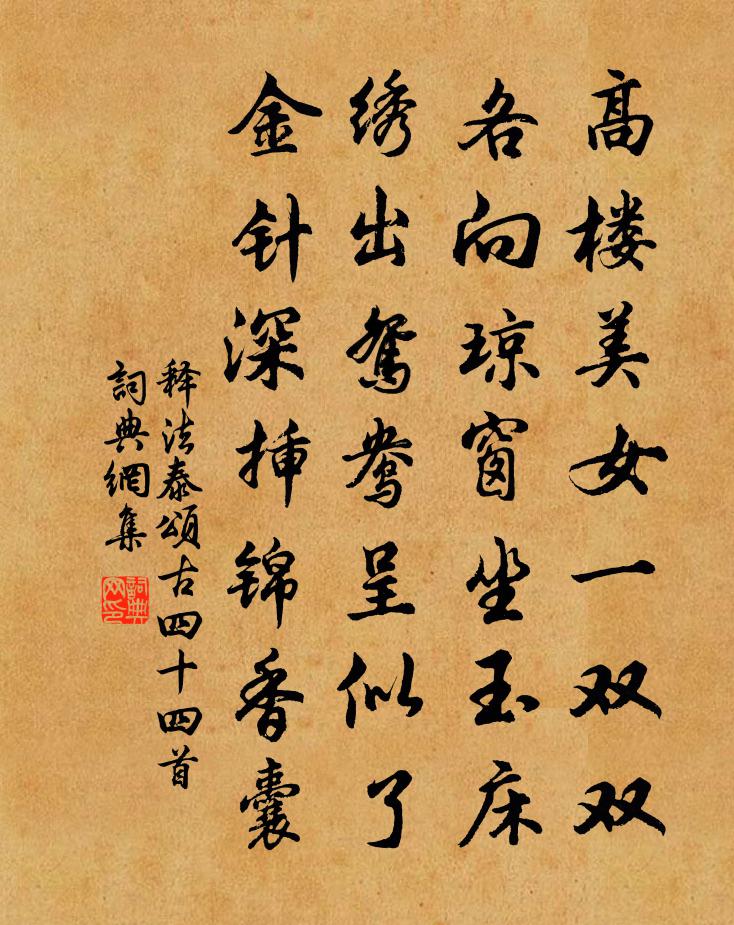 高楼美女一双双
各向琼窗坐玉床
绣出鸳鸯呈似了
金针深插锦香囊
释法泰颂古四十四首
詞典網集
詞典网印